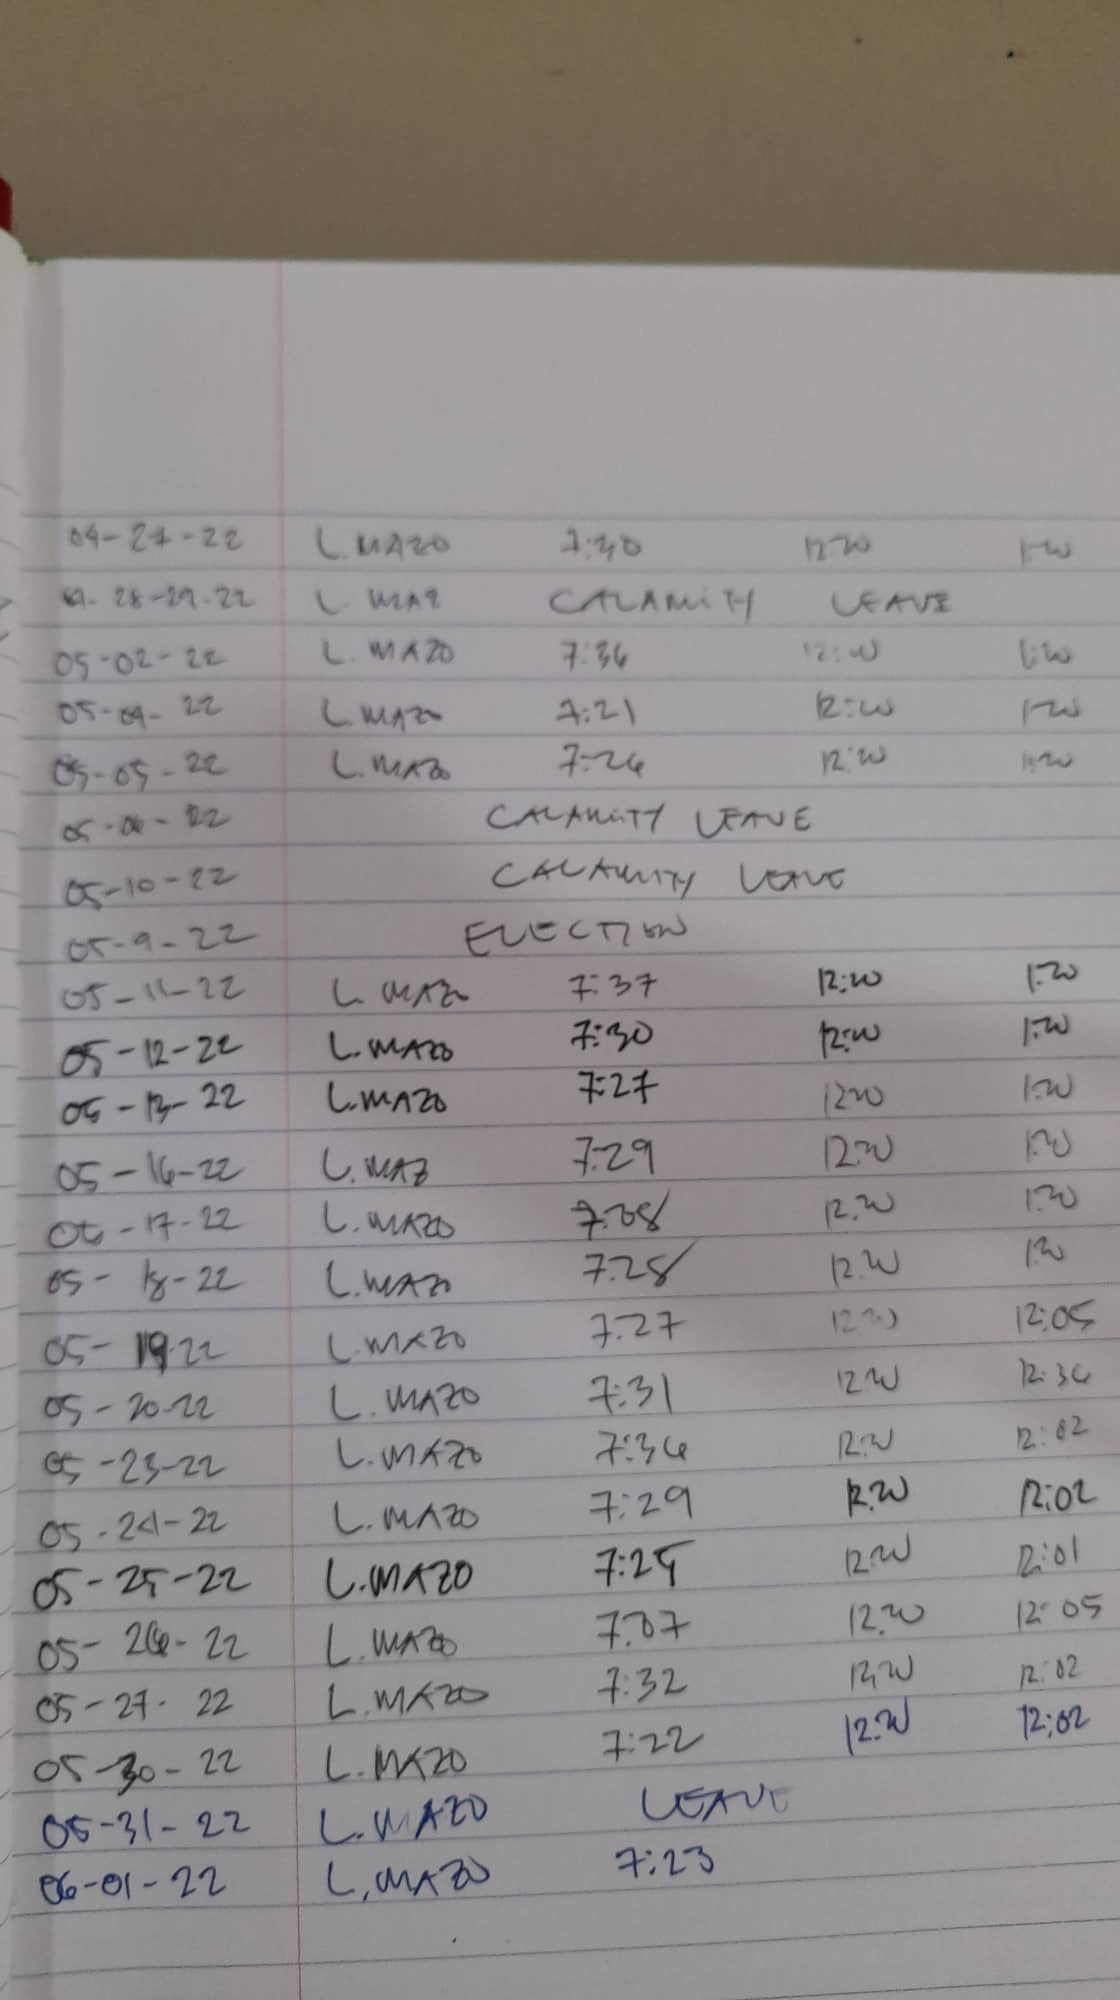 04-27-22 L. MAZO 7:30 12:00 1:00
04-28-29-22 L MAZ CALAMITY LEAVE
05-02-22 L. MAZO 7:36 12:00 1:00
05-04-22 L. MAZO 7:21 12:00 1:00
05-05-22 L. MAZO 7:26 12:00 1:00
05-06-22 CALAMITY LEAVE
05-10-22 CALAMITY LEAVE
05-9-22 ELECTION
05-11-22 L. MAZO 7:37 12:00 1:00
05-12-22 L. MAZO 7:30 12:00 1:00
05-13-22 L. MAZO 7:27 12:00 1:00
05-16-22 L. MAZ 7:29 12:00 1:00
05-17-22 L. MAZO 12:00 1:00
05-18-22 L. MAZO 7:28 12:00 1:00
05-19-22 L. MAZO 7:27 12:00 12:05
05-20-22 L. MAZO 7:31 12:00 12:36
05-23-22 L. MAZO 7:36 12:00 12:02
05-24-22 L. MAZO 7:29 12:00 12:02
05-25-22 L. MAZO 7:25 12:00 12:01
05-26-22 L. MAZO 7:07 12:00 12:05
05-27-22 L. MAZO 7:32 12:00 12:02
05-30-22 L. MAZO 7:22 12:00 12:02
05-31-22 L. MAZO LEAVE
06-01-22 L. MAZO 7:23